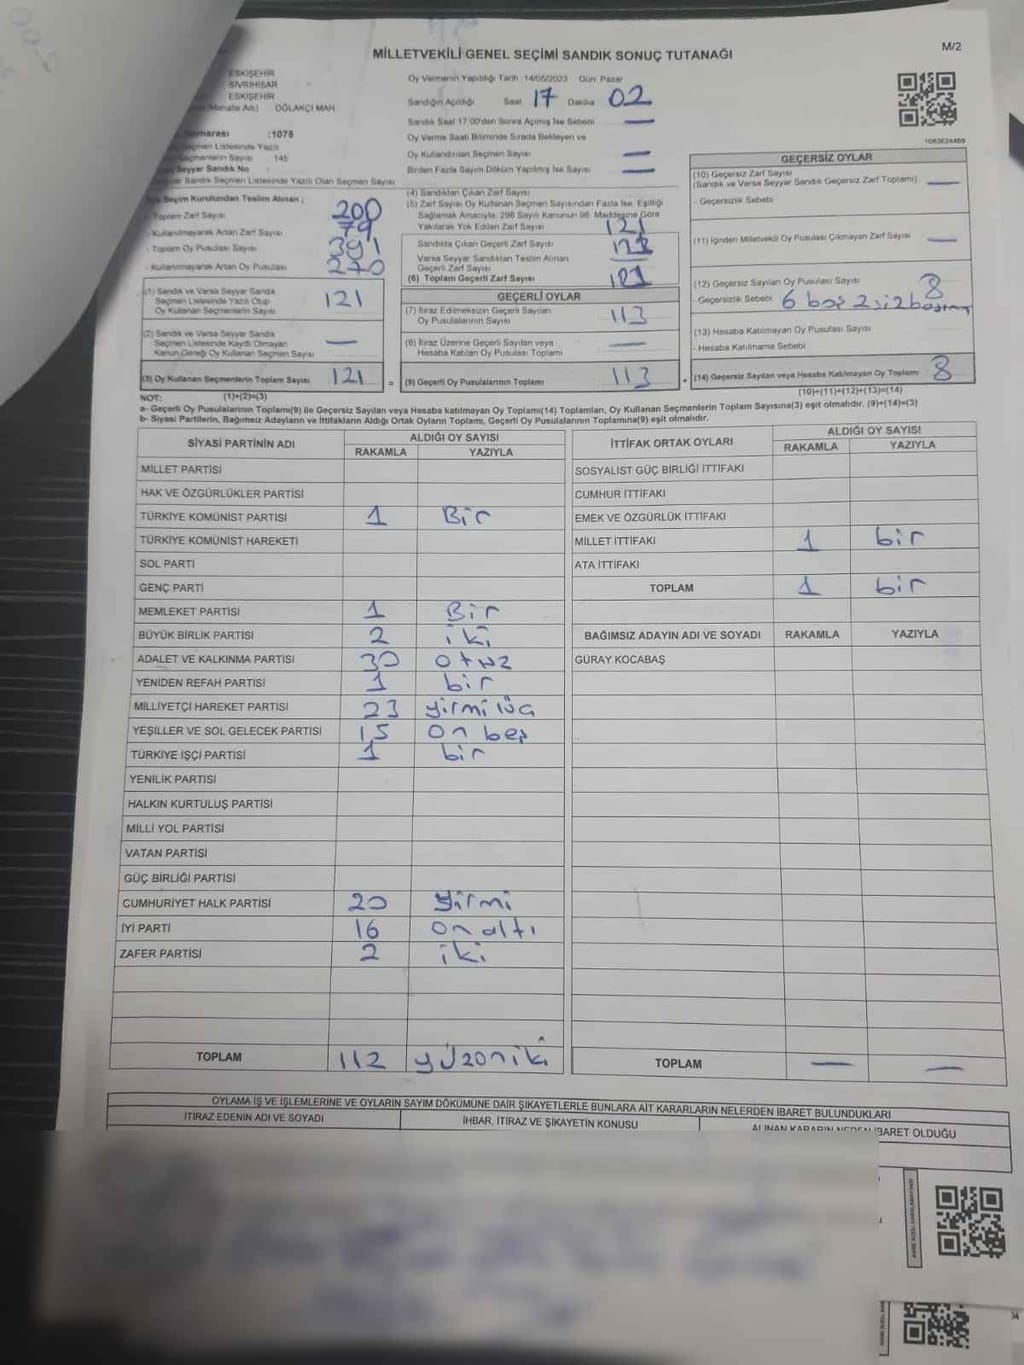 MİLLETVEKİLİ GENEL SEÇİMİ SANDIK SONUÇ TUTANAĞI
M/2
ESKİŞEHİR
SİVRİHİSAR
ESKİŞEHİR
OĞLAKÇI MAH.
:1075
Seçmen Listesinde Yazılı
Seçmenlerin Sayısı 145
Seyyar Sandık No :
Seyyar Sandık Seçmen Listesinde Yazılı Olan Seçmen Sayısı
Seçim Kurulundan Teslim Alınan ;
- Toplam Zarf Sayısı 200
- Kullanılmayarak Artan Zarf Sayısı 79
- Toplam Oy Pusulası Sayısı 391
- Kullanılmayarak Artan Oy Pusulası 270
(1) Sandık ve Varsa Seyyar Sandık
Seçmen Listesinde Yazılı Olup
Oy Kullanan Seçmenlerin Sayısı 121
(2) Sandık ve Varsa Seyyar Sandık
Seçmen Listesinde Kayıtlı Olmayan
Kanun Gereği Oy Kullanan Seçmen Sayısı —
(3) Oy Kullanan Seçmenlerin Toplam Sayısı 121
Oy Vermenin Yapıldığı Tarih 14/05/2023 Gün Pazar
Sandığın Açıldığı Saat 17 Dakika 02
Sandık Saat 17:00'den Sonra Açılmış İse Sebebi —
Oy Verme Saati Bitiminde Sırada Bekleyen ve
Oy Kullandırılan Seçmen Sayısı —
Birden Fazla Sayım Döküm Yapılmış İse Sayısı —
(4) Sandıktan Çıkan Zarf Sayısı
(5) Zarf Sayısı Oy Kullanan Seçmen Sayısından Fazla İse, Eşitliği
Sağlamak Amacıyla; 298 Sayılı Kanunun 98. Maddesine Göre
Yakılarak Yok Edilen Zarf Sayısı 121
Sandıkta Çıkan Geçerli Zarf Sayısı 121
Varsa Seyyar Sandıktan Teslim Alınan
Geçerli Zarf Sayısı
(6) Toplam Geçerli Zarf Sayısı 121
GEÇERLİ OYLAR
(7) İtiraz Edilmeksizin Geçerli Sayılan
Oy Pusulalarının Sayısı 113
(8) İtiraz Üzerine Geçerli Sayılan veya
Hesaba Katılan Oy Pusulası Toplamı —
= (9) Geçerli Oy Pusulalarının Toplamı 113
1083634409
GEÇERSİZ OYLAR
(10) Geçersiz Zarf Sayısı
(Sandık ve Varsa Seyyar Sandık Geçersiz Zarf Toplamı) —
- Geçersizlik Sebebi
(11) İçinden Milletvekili Oy Pusulası Çıkmayan Zarf Sayısı —
(12) Geçersiz Sayılan Oy Pusulası Sayısı 8
- Geçersizlik Sebebi 6 boş 2
(13) Hesaba Katılmayan Oy Pusulası Sayısı
- Hesaba Katılmama Sebebi
(14) Geçersiz Sayılan veya Hesaba Katılmayan Oy Toplamı 8
NOT: (1)+(2)=(3)
(10)+(11)+(12)+(13)=(14)
a- Geçerli Oy Pusulalarının Toplamı(9) ile Geçersiz Sayılan veya Hesaba katılmayan Oy Toplamı(14) Toplamları, Oy Kullanan Seçmenlerin Toplam Sayısına(3) eşit olmalıdır. (9)+(14)=(3)
b- Siyasi Partilerin, Bağımsız Adayların ve İttifakların Aldığı Ortak Oyların Toplamı, Geçerli Oy Pusulalarının Toplamına(9) eşit olmalıdır.
SİYASİ PARTİNİN ADI ALDIĞI OY SAYISI
RAKAMLA YAZIYLA
MİLLET PARTİSİ
HAK VE ÖZGÜRLÜKLER PARTİSİ
TÜRKİYE KOMÜNİST PARTİSİ 1 Bir
TÜRKİYE KOMÜNİST HAREKETİ
SOL PARTİ
GENÇ PARTİ
MEMLEKET PARTİSİ 1 Bir
BÜYÜK BİRLİK PARTİSİ 2 iki
ADALET VE KALKINMA PARTİSİ 30 otuz
YENİDEN REFAH PARTİSİ 1 bir
MİLLİYETÇİ HAREKET PARTİSİ 23 yirmi üç
YEŞİLLER VE SOL GELECEK PARTİSİ 15 on beş
TÜRKİYE İŞÇİ PARTİSİ 1 bir
YENİLİK PARTİSİ
HALKIN KURTULUŞ PARTİSİ
MİLLİ YOL PARTİSİ
VATAN PARTİSİ
GÜÇ BİRLİĞİ PARTİSİ
CUMHURİYET HALK PARTİSİ 20 yirmi
İYİ PARTİ 16 on altı
ZAFER PARTİSİ 2 iki
TOPLAM 112 yüzoniki
İTTİFAK ORTAK OYLARI ALDIĞI OY SAYISI
RAKAMLA YAZIYLA
SOSYALİST GÜÇ BİRLİĞİ İTTİFAKI
CUMHUR İTTİFAKI
EMEK VE ÖZGÜRLÜK İTTİFAKI
MİLLET İTTİFAKI 1 bir
ATA İTTİFAKI
TOPLAM 1 bir
BAĞIMSIZ ADAYIN ADI VE SOYADI RAKAMLA YAZIYLA
GÜRAY KOCABAŞ
TOPLAM — —
OYLAMA İŞ VE İŞLEMLERİNE VE OYLARIN SAYIM DÖKÜMÜNE DAİR ŞİKAYETLERLE BUNLARA AİT KARARLARIN NELERDEN İBARET BULUNDUKLARI
İTİRAZ EDENİN ADI VE SOYADI İHBAR, İTİRAZ VE ŞİKAYETİN KONUSU ALINAN KARARIN NEDEN İBARET OLDUĞU